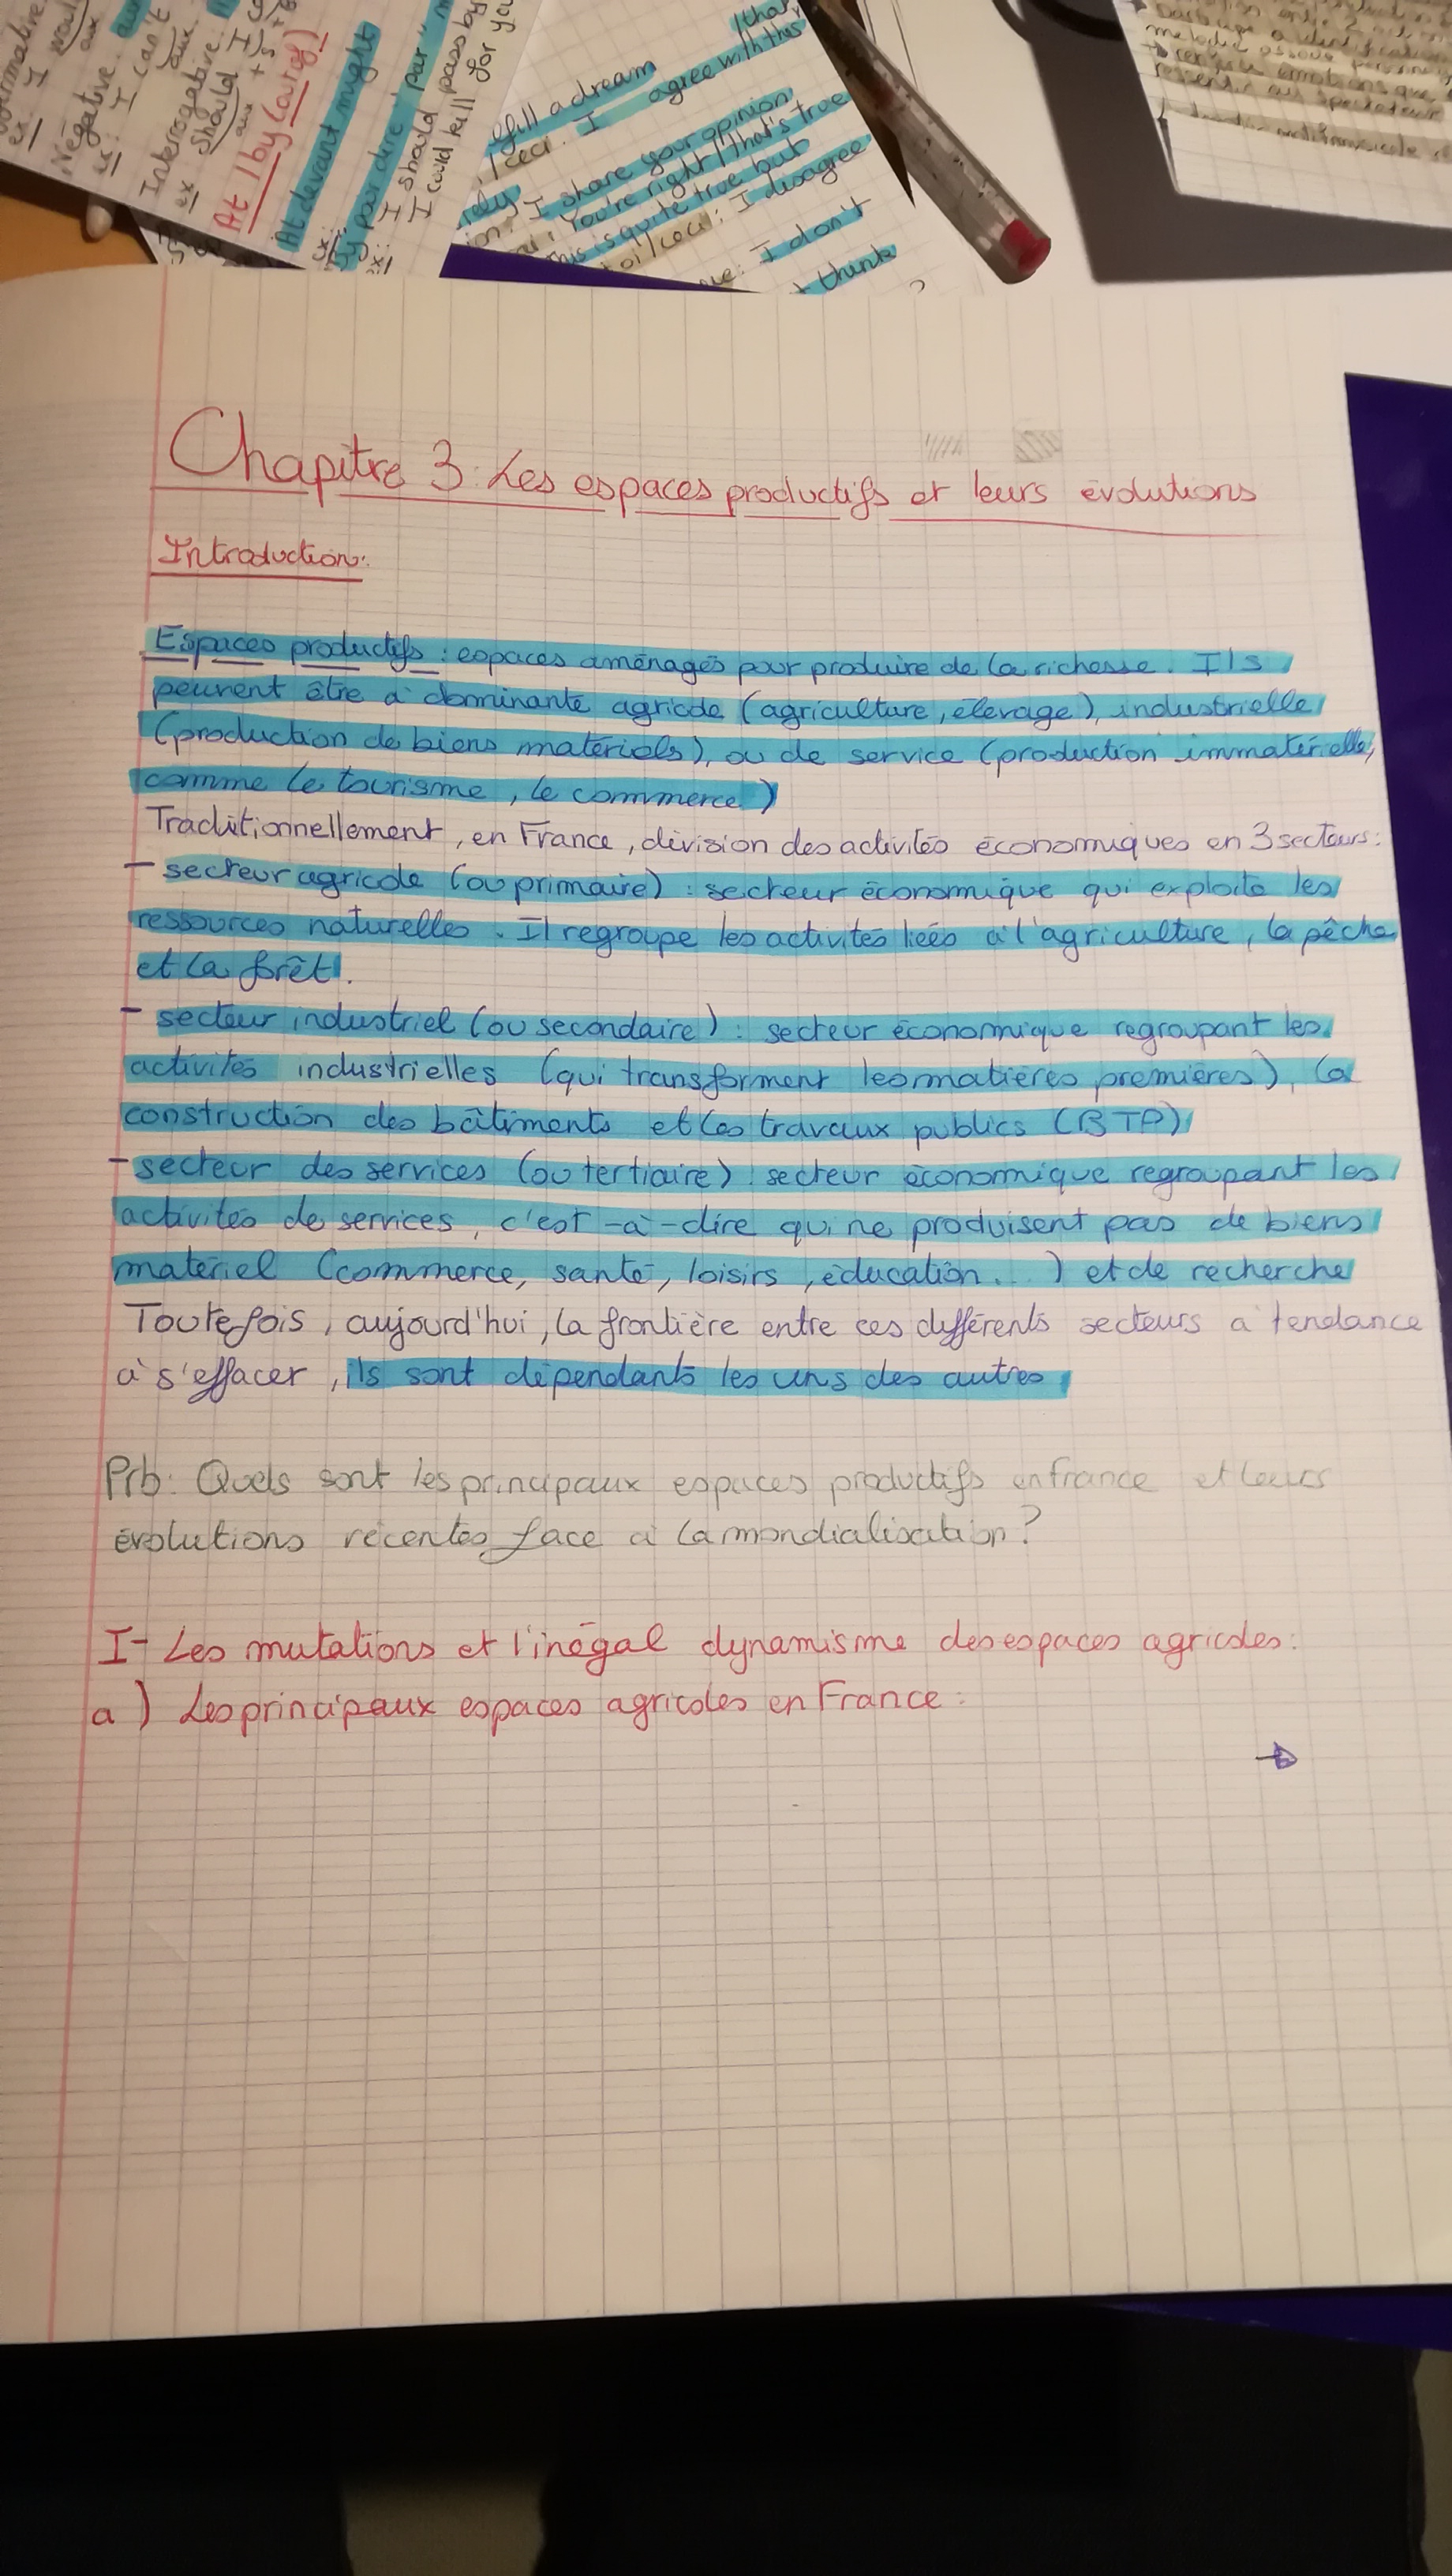 ex: I
Négative:
ex: I can't
aux
Interrogative:
ex
should I
aux
At / by (out of)
At devant night
by pour dire "par"
ex: I should pass by
I could kill for you
a dream
/ceci: I agree with this
I share your opinion
You're right / that's true
This is quite true but
toi/ceci: I disagree
I don't
think
Chapitre 3: Les espaces productifs et leurs évolutions
Introduction:
Espaces productifs : espaces aménagés pour produire de la richesse. Ils
peuvent être à dominante agricole (agriculture, élevage), industrielle
(production de biens matériels), ou de service (production immatérielle,
comme le tourisme, le commerce)
Traditionnellement, en France, division des activités économiques en 3 secteurs:
- secteur agricole (ou primaire) : secteur économique qui exploite les
ressources naturelles. Il regroupe les activités liées à l'agriculture, la pêche
et la forêt.
- secteur industriel (ou secondaire) : secteur économique regroupant les
activités industrielles (qui transforment les matières premières), la
construction des bâtiments et les travaux publics (BTP)
- secteur des services (ou tertiaire) : secteur économique regroupant les
activités de services, c'est-à-dire qui ne produisent pas de biens
matériel (commerce, santé, loisirs, éducation...) et de recherche
Toutefois, aujourd'hui, la frontière entre ces différents secteurs a tendance
à s'effacer, ils sont dépendants les uns des autres
Prb: Quels sont les principaux espaces productifs en france et leurs
évolutions récentes face à la mondialisation?
I- Les mutations et l'inégal dynamisme des espaces agricoles:
a) Les principaux espaces agricoles en France:
→